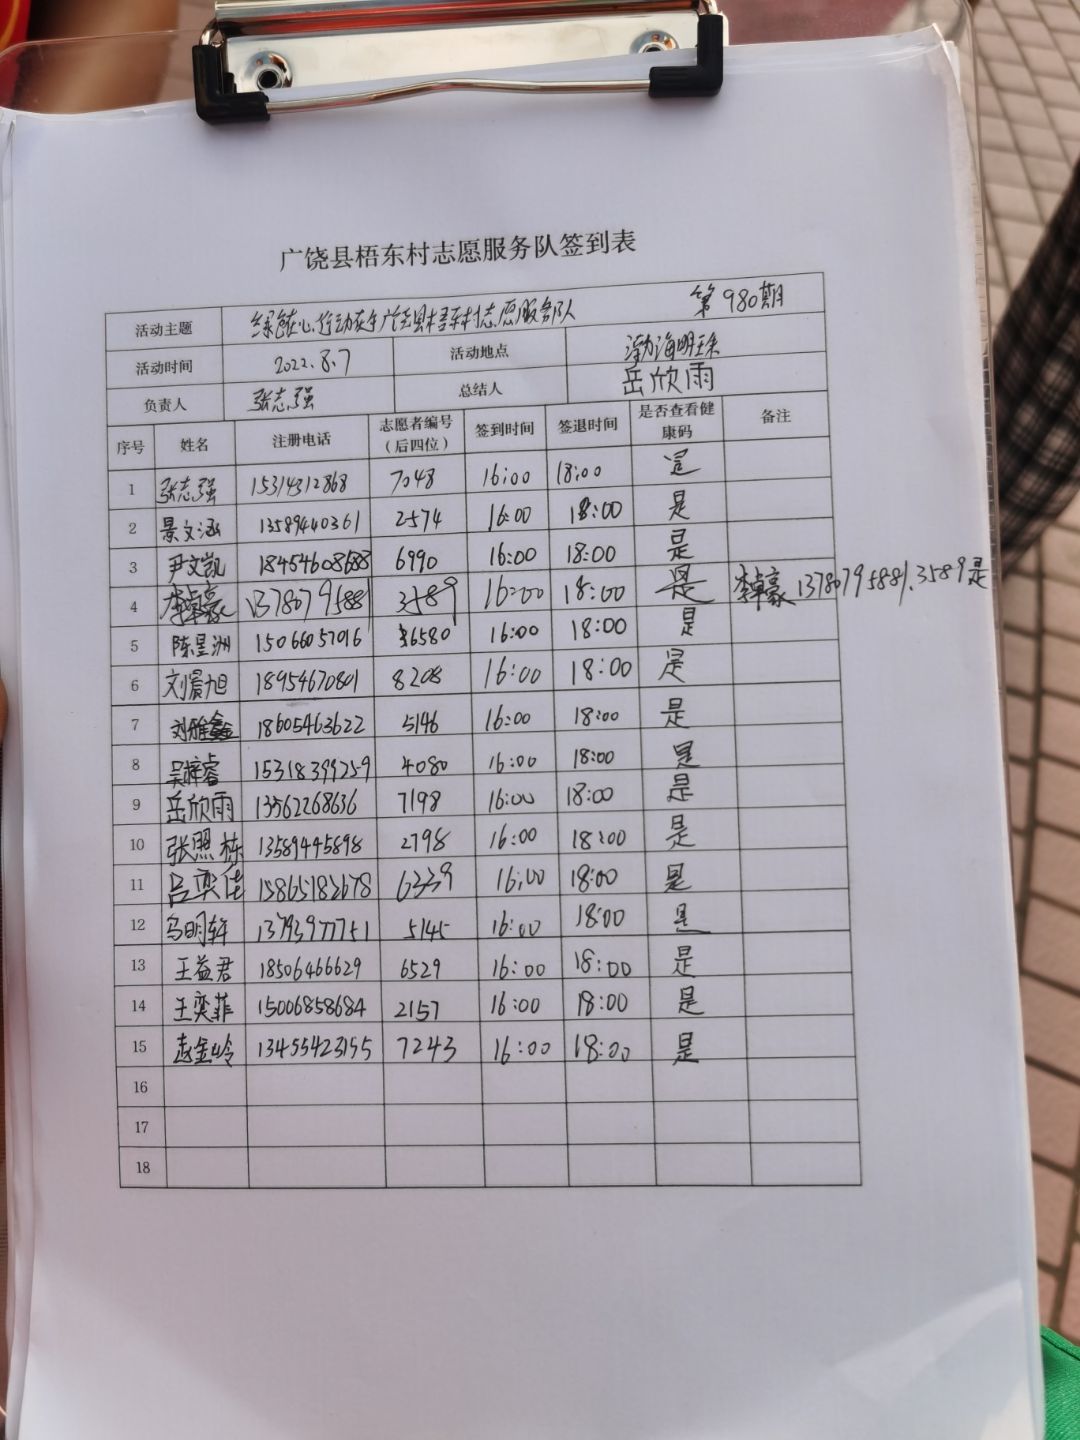 广饶县梧东村志愿服务队签到表
活动主题 绿色在心,行动在手广饶县梧东村志愿服务队 第980期
活动时间 2022.8.7 活动地点 渤海明珠
负责人 张志强 总结人 岳欣雨
序号 姓名 注册电话 志愿者编号(后四位) 签到时间 签退时间 是否查看健康码 备注
1 张志强 15314312868 7048 16:00 18:00 是
2 景文涵 13589440361 2574 16:00 18:00 是
3 尹文凯 18454608688 6990 16:00 18:00 是
4 李卓豪 13780795881 3589 16:00 18:00 是 李卓豪 13780795881.3589是
5 陈星洲 15066057016 6580 16:00 18:00 是
6 刘晨旭 18954670801 8208 16:00 18:00 是
7 刘雅鑫 18605463622 5146 16:00 18:00 是
8 吴梓睿 15318399259 4080 16:00 18:00 是
9 岳欣雨 13562268636 7198 16:00 18:00 是
10 张照栋 13589445898 2798 16:00 18:00 是
11 吕奕佳 15865182678 6339 16:00 18:00 是
12 马明轩 13793977751 5145 16:00 18:00 是
13 王益君 18506466629 6529 16:00 18:00 是
14 王奕菲 15006858684 2157 16:00 18:00 是
15 赵金岭 13455423155 7243 16:00 18:00 是
16
17
18